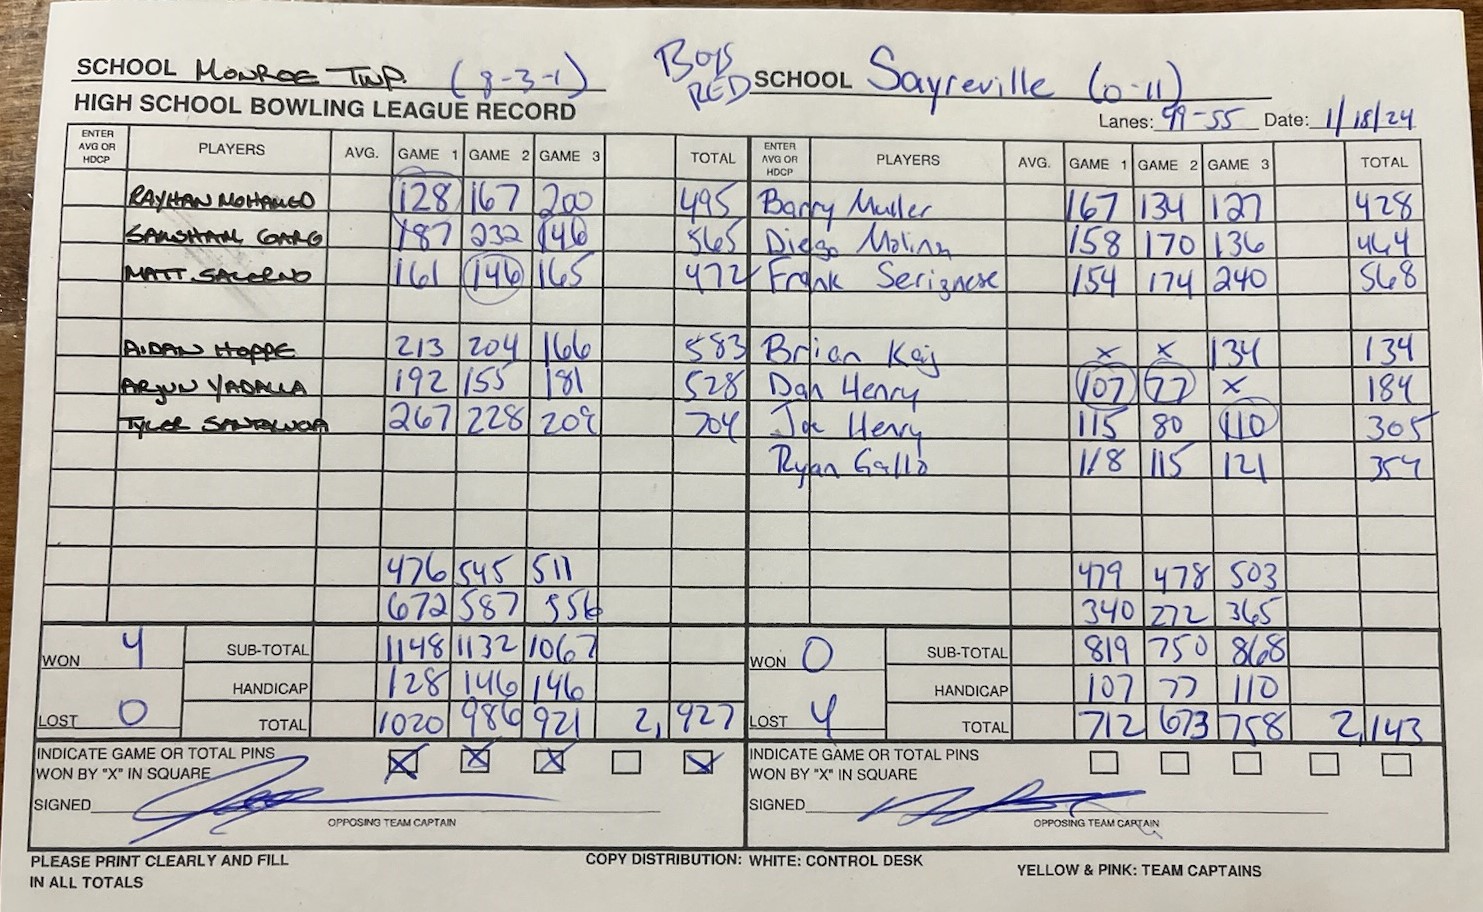 SCHOOL MONROE TWP. (8-3-1) BOYS RED SCHOOL Sayreville (0-11)
HIGH SCHOOL BOWLING LEAGUE RECORD Lanes: 99-55 Date: 1/18/24
ENTER AVG OR HDCP PLAYERS AVG. GAME 1 GAME 2 GAME 3 TOTAL ENTER AVG OR HDCP PLAYERS AVG. GAME 1 GAME 2 GAME 3 TOTAL
RAYHAN MOHAMED 128 167 200 495 Barry Muller 167 134 127 428
SAKSHAM GARG 187 232 146 565 Diego Molina 158 170 136 464
MATT SALERNO 161 146 165 472 Frank Serignese 154 174 240 568
AIDAN HOPPE 213 204 166 583 Brian x x 134 134
ARJUN YADALLA 192 155 181 528 Dan Henry 107 77 x 184
TYLER 267 228 209 704 Joe Henry 115 80 110 305
Ryan Gallo 118 115 121 354
476 545 511 479 478 503
672 587 556 340 272 365
WON 4 SUB-TOTAL 1148 1132 1067 WON 0 SUB-TOTAL 819 750 868
HANDICAP 128 146 146 HANDICAP 107 77 110
LOST 0 TOTAL 1020 986 921 2,927 LOST 4 TOTAL 712 673 758 2,143
INDICATE GAME OR TOTAL PINS WON BY "X" IN SQUARE X X X X INDICATE GAME OR TOTAL PINS WON BY "X" IN SQUARE
SIGNED SIGNED
OPPOSING TEAM CAPTAIN OPPOSING TEAM CAPTAIN
PLEASE PRINT CLEARLY AND FILL IN ALL TOTALS COPY DISTRIBUTION: WHITE: CONTROL DESK YELLOW & PINK: TEAM CAPTAINS